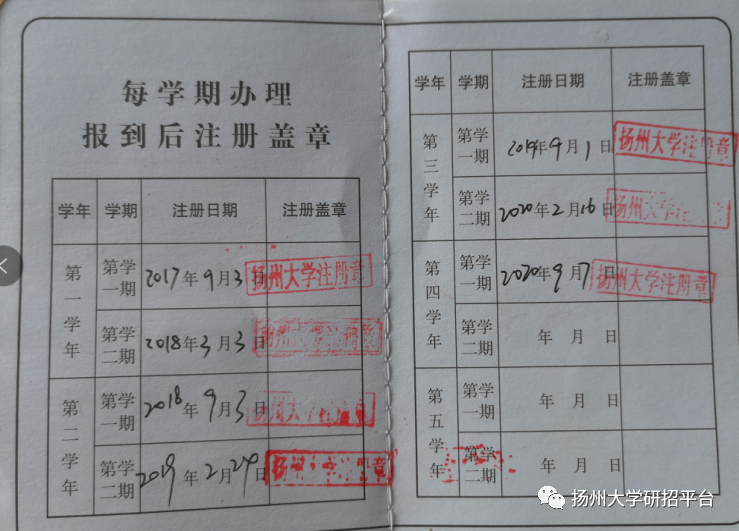 每学期办理
报到后注册盖章
学年 学期 注册日期 注册盖章
第一学年 第学一期 2017年9月3日 扬州大学注册章
第学二期 2018年3月3日 扬州大学注册章
第二学年 第学一期 2018年9月3日 扬州大学注册章
第学二期 2019年2月24日 扬州大学注册章
学年 学期 注册日期 注册盖章
第三学年 第学一期 2019年9月1日 扬州大学注册章
第学二期 2020年2月16日 扬州大学注册章
第四学年 第学一期 2020年9月7日 扬州大学注册章
第学二期 年 月 日
第五学年 第学一期 年 月 日
第学二期 年 月 日
扬州大学研招平台